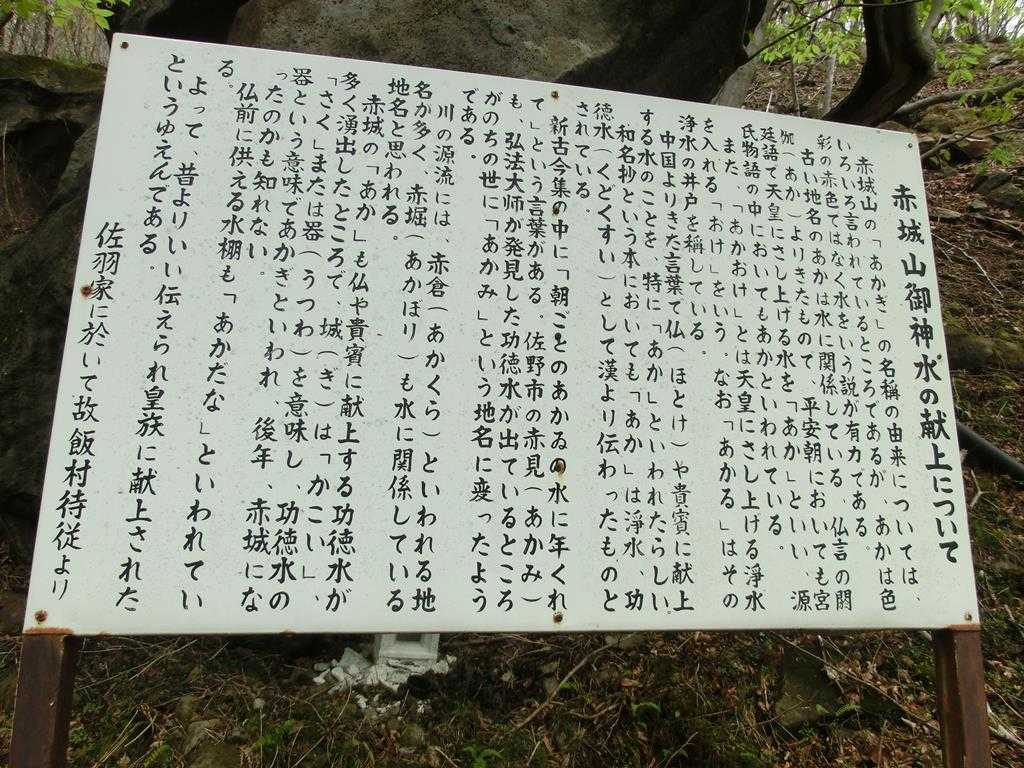 赤城山御神水の献上について
赤城山の「あかぎ」の名稱の由来については、
いろいろ言われているところであるが、あかは色
彩の赤色ではなく水をいう説が有力である。
古い地名のあかは水に関係している、仏言の閼
伽(あか)よりきたもので、平安朝においても宮
廷語で天皇にさし上げる水を「あか」といい、源
氏物語の中においてもあかといわれている。
また、「あかおけ」とは天皇にさし上げる淨水
を入れる「おけ」をいう。なお「あかゐ」はその
淨水の井戸を稱している。
中国よりきた言葉で仏(ほとけ)や貴賓に献上
する水のことを、特に「あか」といわれたらしい。
和名抄という本においても「あか」は淨水、功
徳水(くどくすい)として漢より伝わったものと
されている。
新古今集の中に「朝ごとのあかゐの水に年くれ
て」という言葉がある。佐野市の赤見(あかみ)
も、弘法大師が発見した功徳水が出ているところ
がのちの世に「あかみ」という地名に変ったよう
である。
川の源流には、赤倉(あかくら)といわれる地
名が多く、赤堀(あかぼり)も水に関係している
地名と思われる。
赤城の「あか」も仏や貴賓に献上する功徳水が
多く湧出したところで、城(ぎ)は「かこい」、
「さく」または器(うつわ)を意味し、功徳水の
器という意味であかぎといわれ、後年、赤城にな
ったのかも知れない。
仏前に供える水棚も「あかだな」といわれてい
る。
よって、昔よりいい伝えられ皇族に献上された
というゆえんである。
佐羽家に於いて故飯村待従より